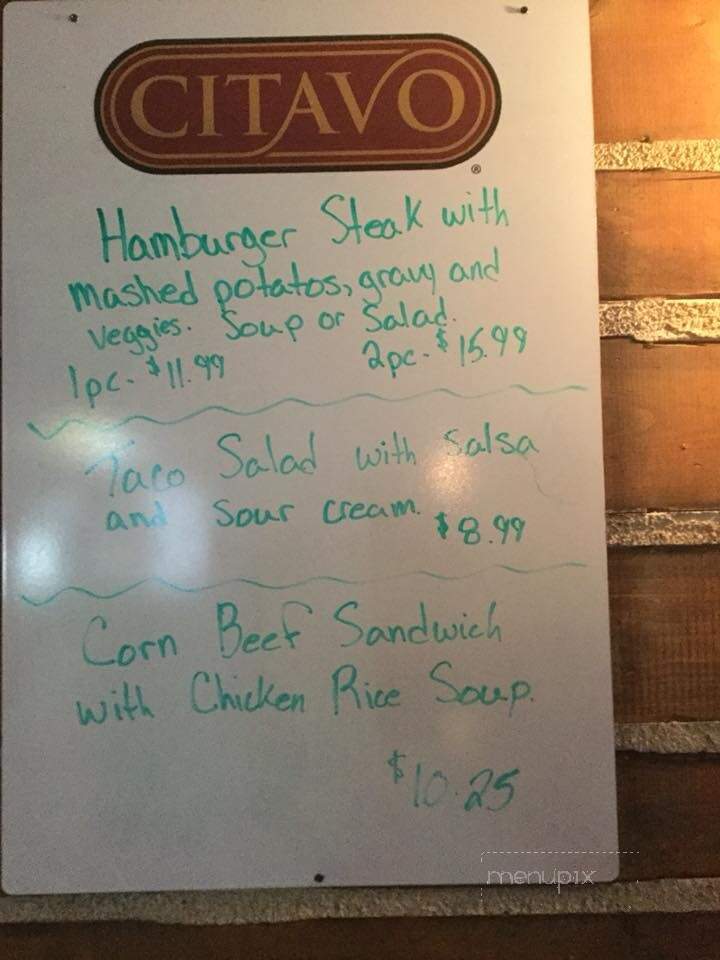 CITAVO
®
Hamburger Steak with
mashed potatos, gravy and
veggies. Soup or Salad.
1pc. $11.99 2pc. $15.99
Taco Salad with salsa
and sour cream.
$8.99
Corn Beef Sandwich
with Chicken Rice Soup.
$10.25
menupix